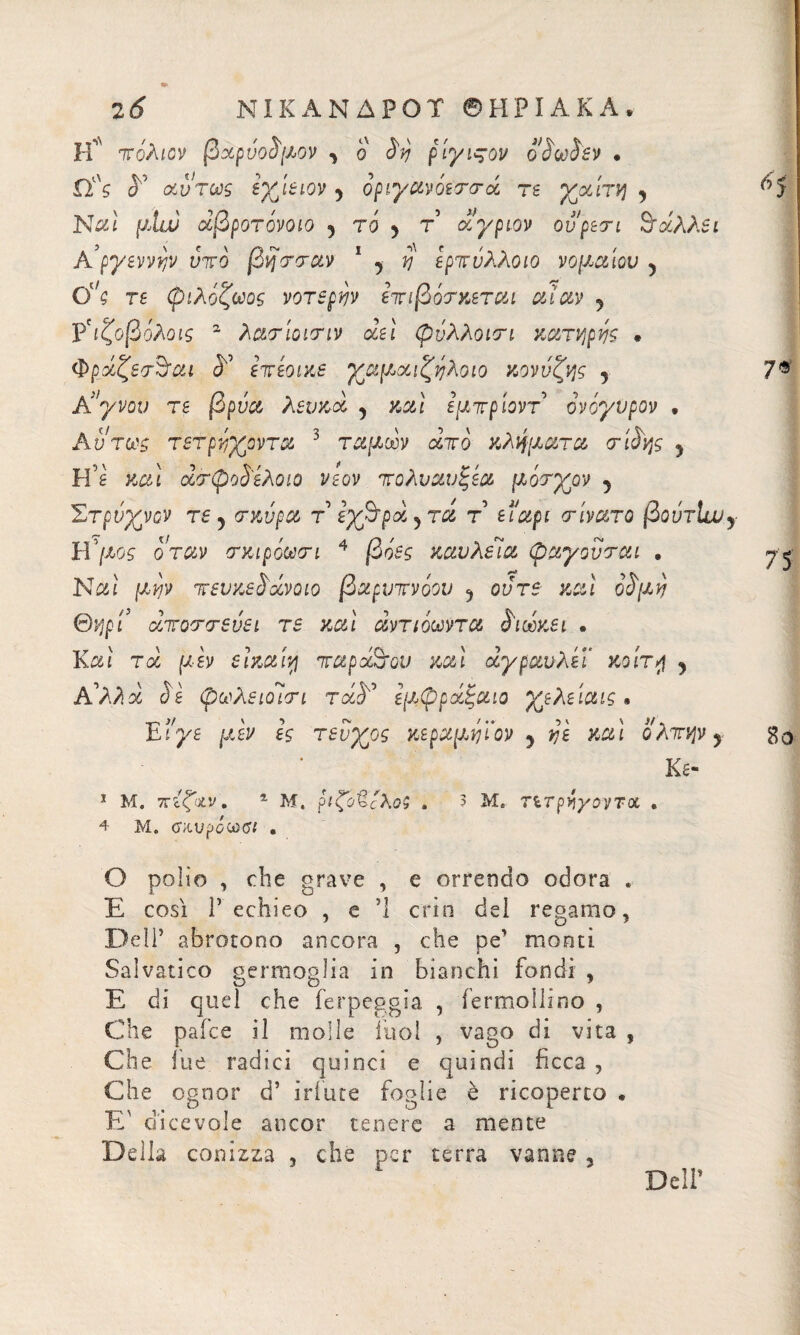 26 ΝΙΚΑΝΔΡΟΥ ΘΗΡΙΑΚΑ.
Η῍ πόλιον βαρύοδμον , ὃ δὴ ῥίγιϛον ὄδωδεν .
Ω῝ς δ’ αὔτως ἐχίειον , ὀριγανόεσσά τε χαίτη , 65
Ναὶ μὴν ἀβροτόνοιο , τό , τ’ ἄγριον οὔρεσι θάλλει
Α᾿ργεννὴν ὑπὸ βῆσσαν 1 , ἢ ἑρπύλλοιο νομαίου ,
Ο῞ς τε φιλόζωος νοτερὴν ἐπιβόσκεται αἶαν ,
Ρ῾ιζοβόλοις 2 λασίοισιν ἀεὶ φύλλοισι κατηρής .
Φράζεσθαι δ’ ἐπέοικε χαμαιζήλοιο κονύζης , 70
Α῎γνου τε βρύα λευκὰ , καὶ ἐμπρίοντ’ ὀνόγυρον .
Αὔτως τετρήχοντα 3 ταμὼν ἀπὸ κλήματα σίδης ,
Η᾿ὲ καὶ ἀσφοδέλοιο νέον πολυαυξέα μόσχον ,
Στρύχνον τε , σκύρα τ’ ἐχθρὰ , τά τ’ εἴαρι σίνατο βούτην ,
Η῏μος ὅταν σκιρόωσι 4 βόες καυλεῖα φαγοῦσαι . 75
Ναὶ μὴν πευκεδάνοιο βαρυπνόου , οὔτε καὶ ὀδμὴ
Θηρί’ ἀποσσεύει τε καὶ ἀντιόωντα διώκει .
Καὶ τὰ μὲν εἰκαίῃ παράθου καὶ ἀγραυλέϊ κοίτῃ ,
Α῎λλα δὲ φωλειοῖσι τάδ’ ἐμφράξαιο χελείαις .
Εἴγε μὲν ἐς τεῦχος κεραμήϊον , ἠὲ καὶ ὄλπην , 80
Κε-
1 Μ. πέζαν. 2 Μ. ῥιζοβόλος . 3 Μ. τετρήγοντα .
4 Μ. σκυρόωσι .
O polio , che grave , e orrendo odora .
E così l’ echieo , e ’l crin del regamo,
Dell’ abrotono ancora , che pe’ monti
Salvatico germoglia in bianchi fondi ,
E di quel che serpeggia , sermollino ,
Che pasce il molle suol , vago di vita ,
Che sue radici quinci e quindi ficca ,
Che ognor d’ irsute foglie è ricoperto .
E' dicevole ancor tenere a mente
Della conizza , che per terra vanne ,
Dell’